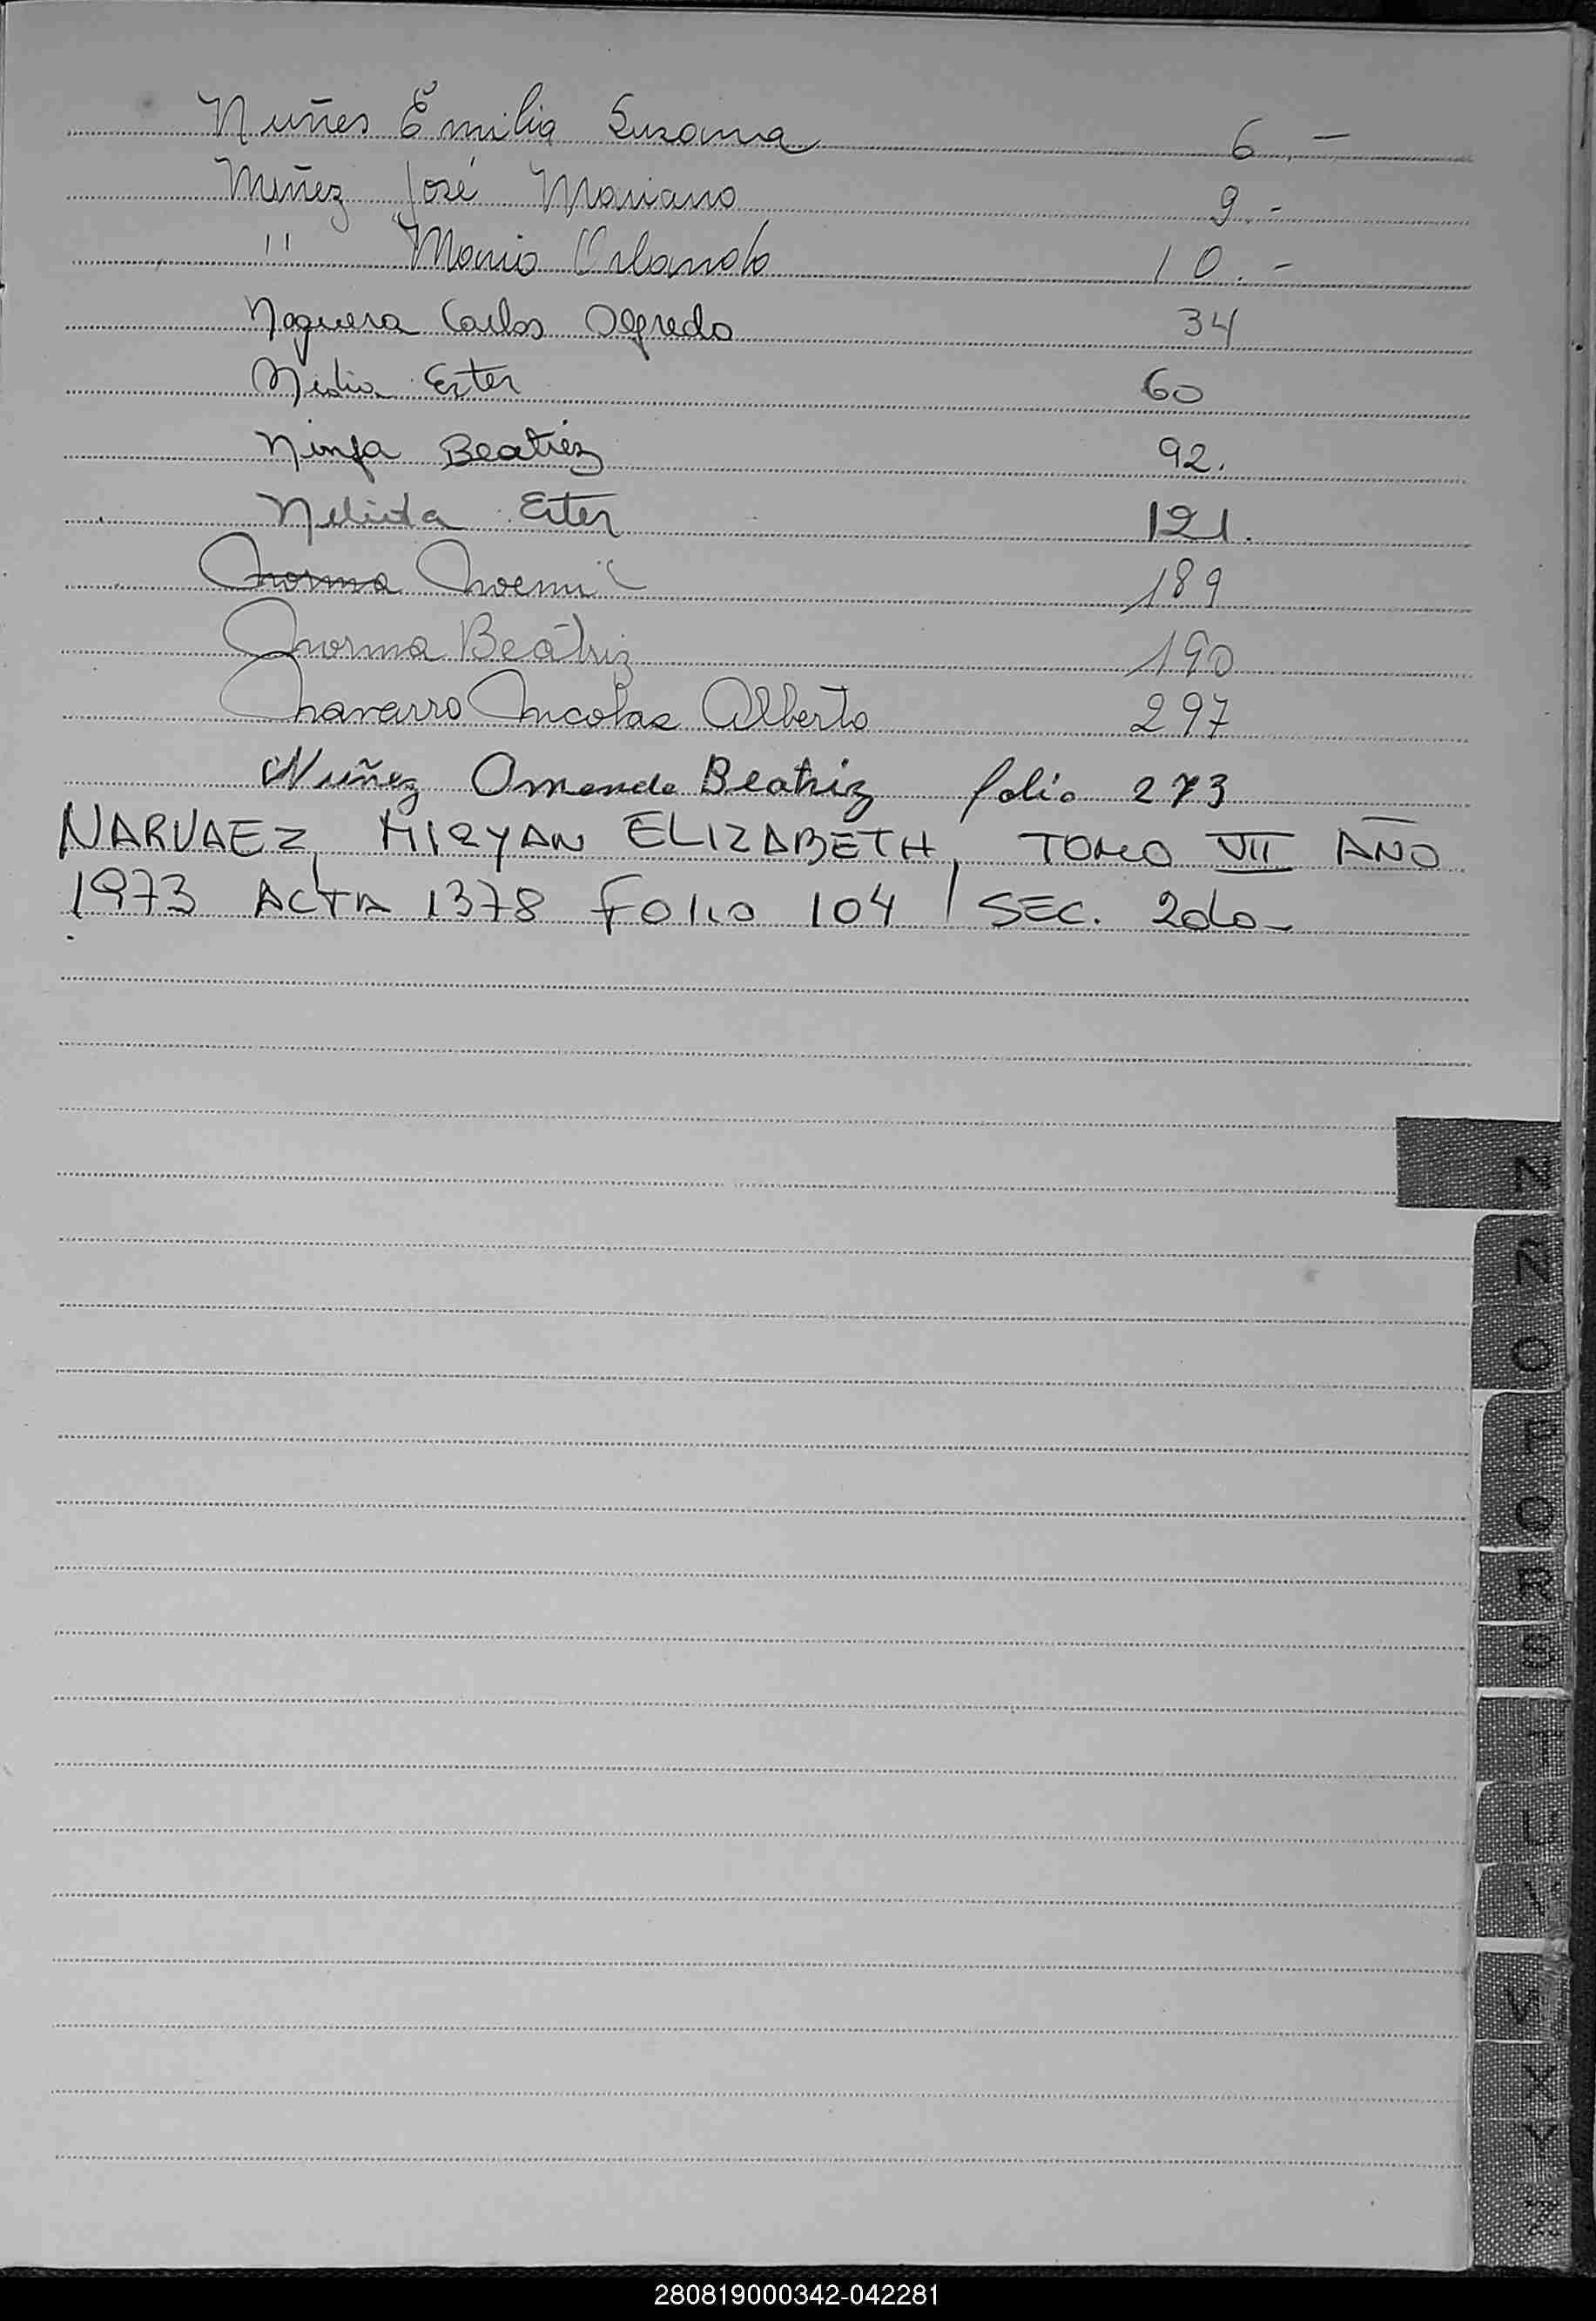 Nuñes Emilia Susana 6.-
Nuñez José Mariano 9.-
" Mario Orlando 10.-
Noguera Carlos Alfredo 34
Nidia Ester 60
Ninfa Beatriz 92.
Nelida Ester 121.
Norma Noemí 189
Norma Beátriz 190
Navarro Nicolas Alberto 297
Nuñez Amanda Beatriz folio 273
NARVAEZ, MIRYAN ELIZABETH, TOMO VII AÑO
1973 ACTA 1378 FOLIO 104 / SEC. 2do-
N
Ñ
O
P
Q
R
S
T
U
V
W
X
Y
Z
280819000342-042281